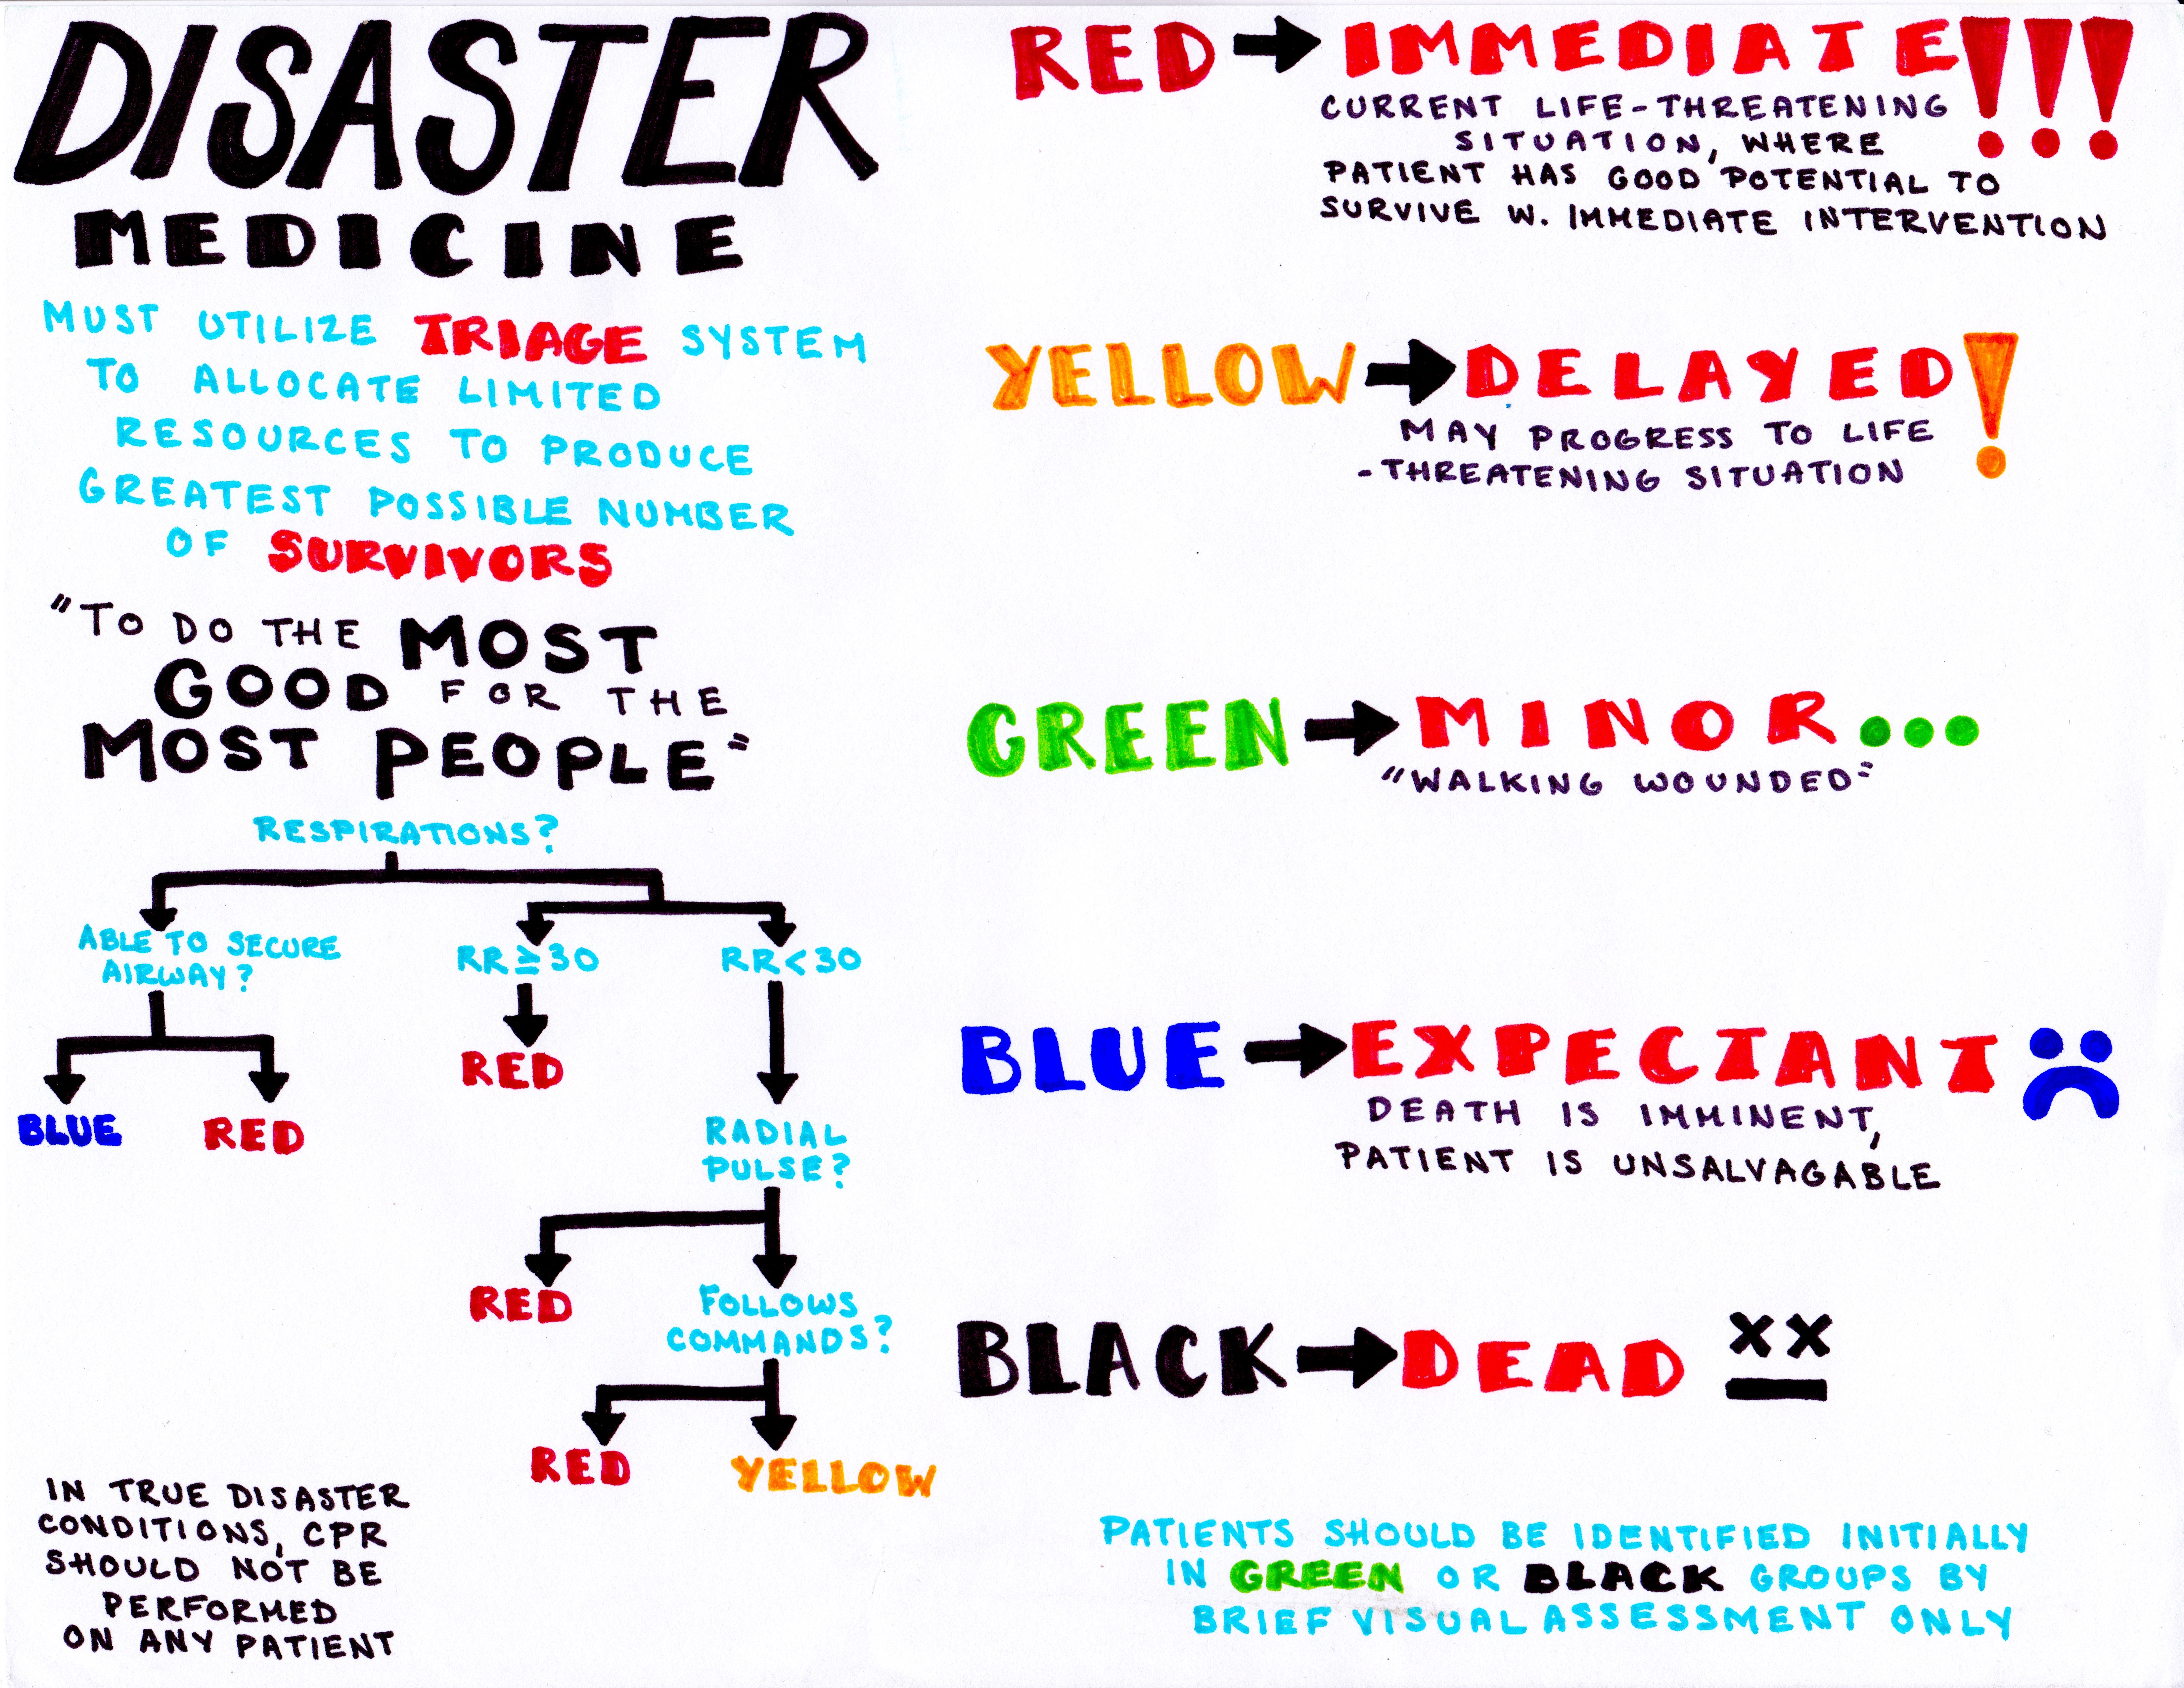 DISASTER
MEDICINE
MUST UTILIZE TRIAGE SYSTEM
TO ALLOCATE LIMITED
RESOURCES TO PRODUCE
GREATEST POSSIBLE NUMBER
OF SURVIVORS
"TO DO THE MOST
GOOD FOR THE
MOST PEOPLE"
RESPIRATIONS?
ABLE TO SECURE
AIRWAY?
RR≥30
RR<30
BLUE
RED
RED
RADIAL
PULSE?
RED
FOLLOWS
COMMANDS?
RED
YELLOW
IN TRUE DISASTER
CONDITIONS, CPR
SHOULD NOT BE
PERFORMED
ON ANY PATIENT
RED → IMMEDIATE!!!
CURRENT LIFE-THREATENING
SITUATION, WHERE
PATIENT HAS GOOD POTENTIAL TO
SURVIVE W. IMMEDIATE INTERVENTION
YELLOW → DELAYED!
MAY PROGRESS TO LIFE
-THREATENING SITUATION
GREEN → MINOR...
"WALKING WOUNDED"
BLUE → EXPECTANT
DEATH IS IMMINENT,
PATIENT IS UNSALVAGABLE
BLACK → DEAD
PATIENTS SHOULD BE IDENTIFIED INITIALLY
IN GREEN OR BLACK GROUPS BY
BRIEF VISUAL ASSESSMENT ONLY